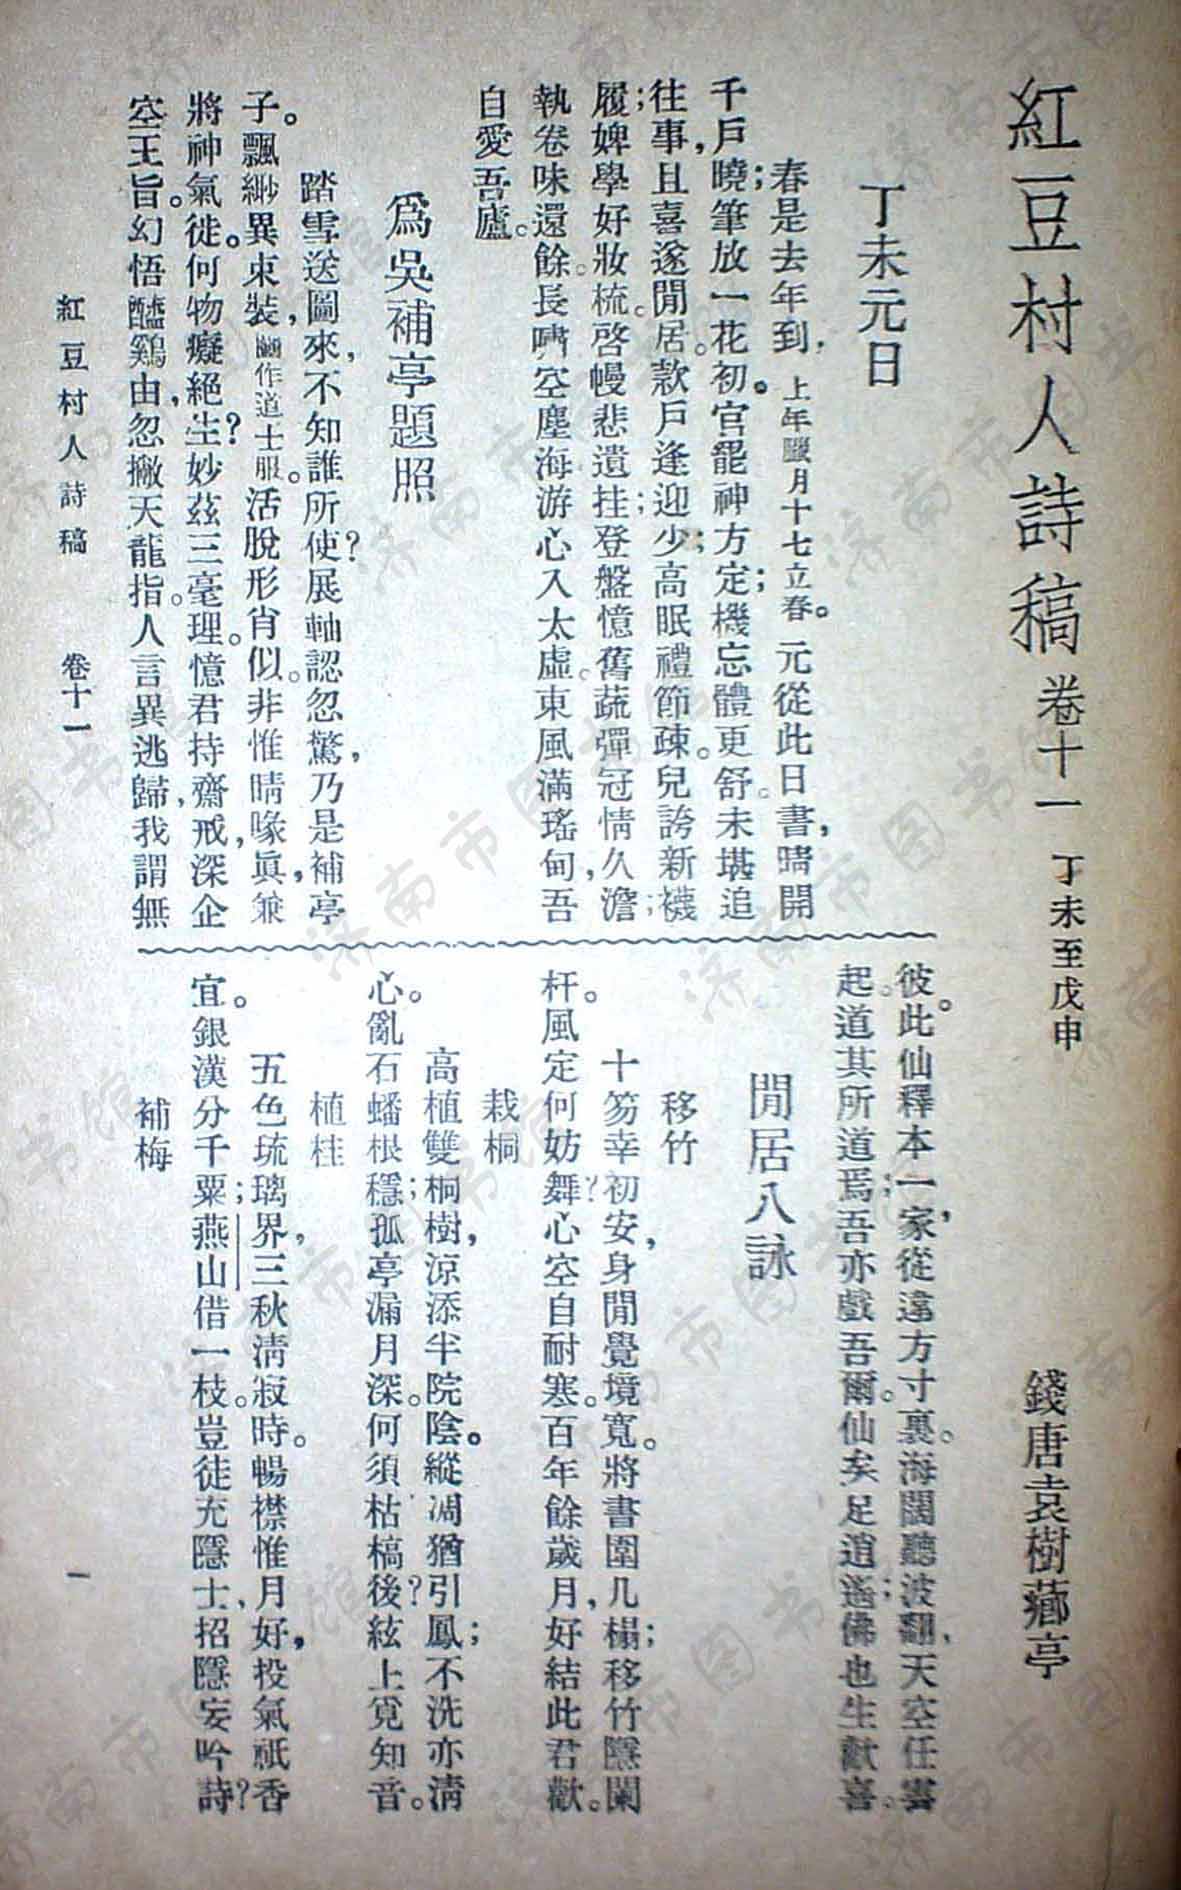 紅豆村人詩稿 卷十一 丁未至戊申
錢唐袁樹薌亭
丁未元日
春是去年到,上年臘月十七立春。元從此日書,晴開
千戶曉;筆放一花初。官罷神方定;機忘體更舒。未堪追
往事,且喜遂閒居。款戶逢迎少;高眠禮節疎。兒誇新襪
履;婢學好妝梳。啓幔悲遺挂;登盤憶舊蔬。彈冠情久澹;
執卷味還餘。長嘯空塵海,游心入太虛。東風滿瑤甸,吾
自愛吾廬。
爲吳補亭題照
踏雪送圖來,不知誰所使?展軸認忽驚,乃是補亭
子。飄緲異束裝,圖作道士服。活脫形肖似。非惟晴喙眞,兼
將神氣徙。何物癡絕生?妙茲三毫理。憶君持齋戒,深企
空王旨。幻悟醯鷄由,忽撇天龍指。人言異逃歸,我謂無
彼此。仙釋本一家,從違方寸裏。海闊聽波翻,天空任雲
起。道其所道焉;吾亦戲吾爾。仙矣足逍遙;佛也生歡喜。
閒居八詠
移竹
十笏幸初安,身閒覺境寬。將書圍几榻;移竹隱闌
杆。風定何妨舞?心空自耐寒。百年餘歲月,好結此君歡。
栽桐
高植雙桐樹,涼添半院陰。縱凋猶引鳳;不洗亦清
心。亂石蟠根穩;孤亭漏月深。何須枯槁後?絃上覓知音。
植桂
五色琉璃界,三秋清寂時。暢襟惟月好,投氣祇香
宜。銀漢分千粟;燕山借一枝。豈徒充隱士,招隱妄吟詩?
補梅
紅豆村人詩稿 卷十一 一
济南市图书馆